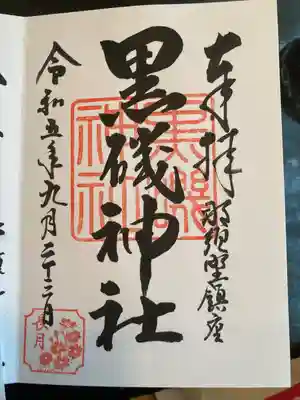 奉拝 那須野鎮座
黒磯神社
黒磯神社
令和五年九月二十三日
長月